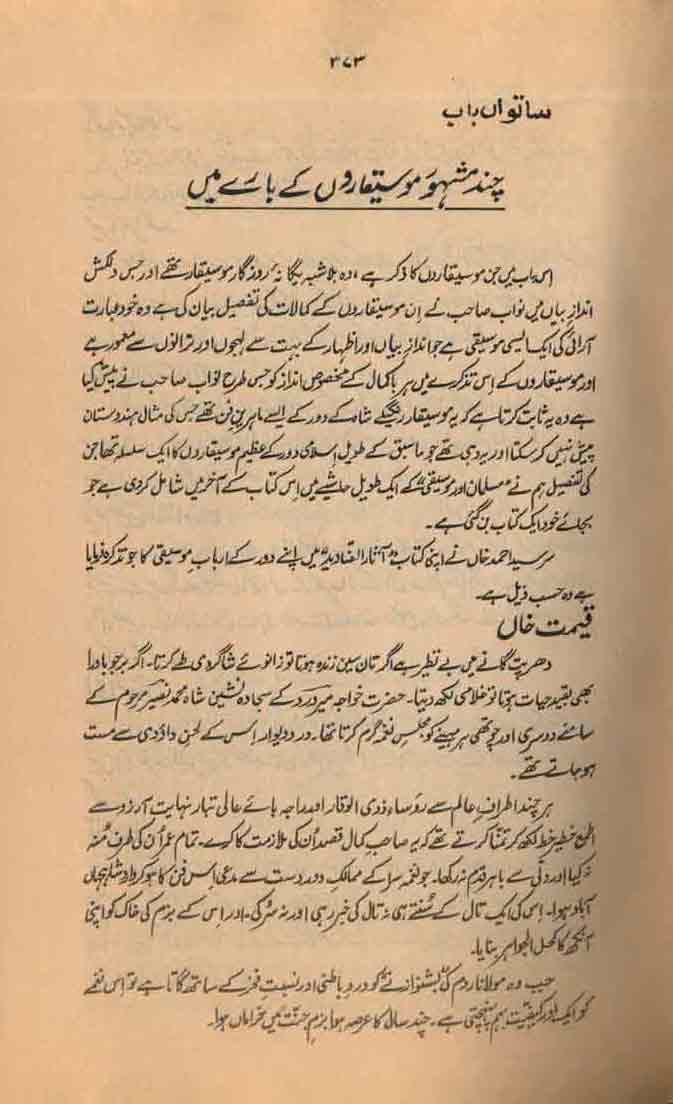 ۳۷۳
ساتواں باب
چند مشہور موسیقاروں کے بارے میں
اس باب میں جن موسیقاروں کا ذکر ہے، وہ بلا شبہ یگانۂ روزگار موسیقار تھے اور جس دلکش
انداز بیاں میں نواب صاحب نے ان موسیقاروں کے کمالات کی تفصیل بیان کی ہے وہ خود عبارت
آرائی کی ایک ایسی موسیقی ہے جو انداز بیاں اور اظہار کے بہت سے لہجوں اور ترانوں سے معمور ہے
اور موسیقاروں کے اس تذکرے میں ہر باکمال کے مخصوص انداز کو جس طرح نواب صاحب نے پیش کیا
ہے وہ یہ ثابت کرتا ہے کہ یہ موسیقار رنگیلے شاہ کے دور کے ایسے ماہرین فن تھے جس کی مثال ہندوستان
پیش نہیں کر سکتا اور یہ وہی تھے جو ماسبق کے طویل اسلامی دور کے عظیم موسیقاروں کا ایک سلسلہ تھا جن
کی تفصیل ہم نے "مسلمان اور موسیقی" کے ایک طویل حاشیے میں اس کتاب کے آخر میں شامل کر دی ہے جو
بجائے خود ایک کتاب بن گئی ہے۔
سرسید احمد خاں نے اپنی کتاب "آثار الصنادید" میں اپنے دور کے ارباب موسیقی کا جو تذکرہ فرمایا
ہے وہ حسب ذیل ہے۔
قیمت خاں
دھرپت گانے میں بے نظیر ہے اگر تان سین زندہ ہوتا تو زانوئے شاگردی طے کرتا۔ اگر بیرجو باورا
بھی بقید حیات ہوتا تو غلامی لکھ دیتا۔ حضرت خواجہ میر درد کے سجادہ نشین شاہ محمد نصیر مرحوم کے
سامنے دوسری اور چوتھی ہر مہینے کو مجلس نغمہ گرم کرتا تھا۔ در و دیوار اس کے لحن داؤدی سے مست
ہو جاتے تھے۔
ہر چند اطراف عالم سے رؤساء ذوی الوقار اور راجہ ہائے عالی تبار نہایت آرزو سے
طمع خطیر خط لکھ کر تمنا کرتے تھے کہ یہ صاحب کمال قصد ان کی ملازمت کا کرے۔ تمام عمر ان کی طرف منہ
نہ کیا اور دلی سے باہر قدم نہ رکھا۔ جو نغمہ سرا کے ممالک دور دست سے مدعی اس فن کا ہو کر وارد شاہجہاں
آباد ہوا۔ اس کی ایک تال کے سنتے ہی نہ تال کی خبر رہی اور نہ سر کی۔ اور اس کے بزم کی خاک کو اپنی
آنکھ کا کحل الجواہر بنایا۔
جب وہ مولانا روم کی "بشنو از نے" کو درد باطنی اور نسبت فخر کے ساتھ گاتا ہے تو اس نغمے
کو ایک اور کیفیت بہم پہنچتی ہے۔ چند سال کا عرصہ ہوا بزم جنت میں خراماں ہوا۔